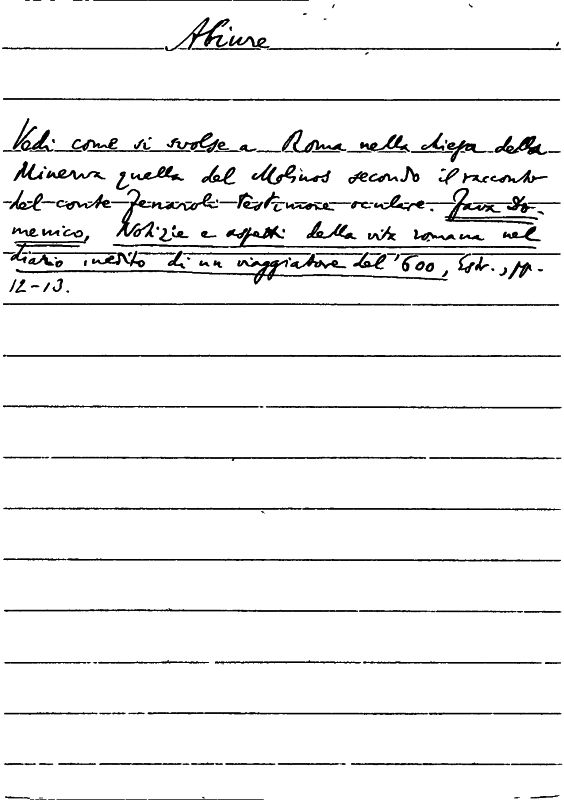 Abiure
Vedi come si svolse a Roma nella chiesa della
Minerva quella del Molinos secondo il racconto
del conte Fenaroli testimone oculare. Fava Do-
menico, Notizie e aspetti della vita romana nel
diario inedito di un viaggiatore del '600, Estr., pp.
12-13.